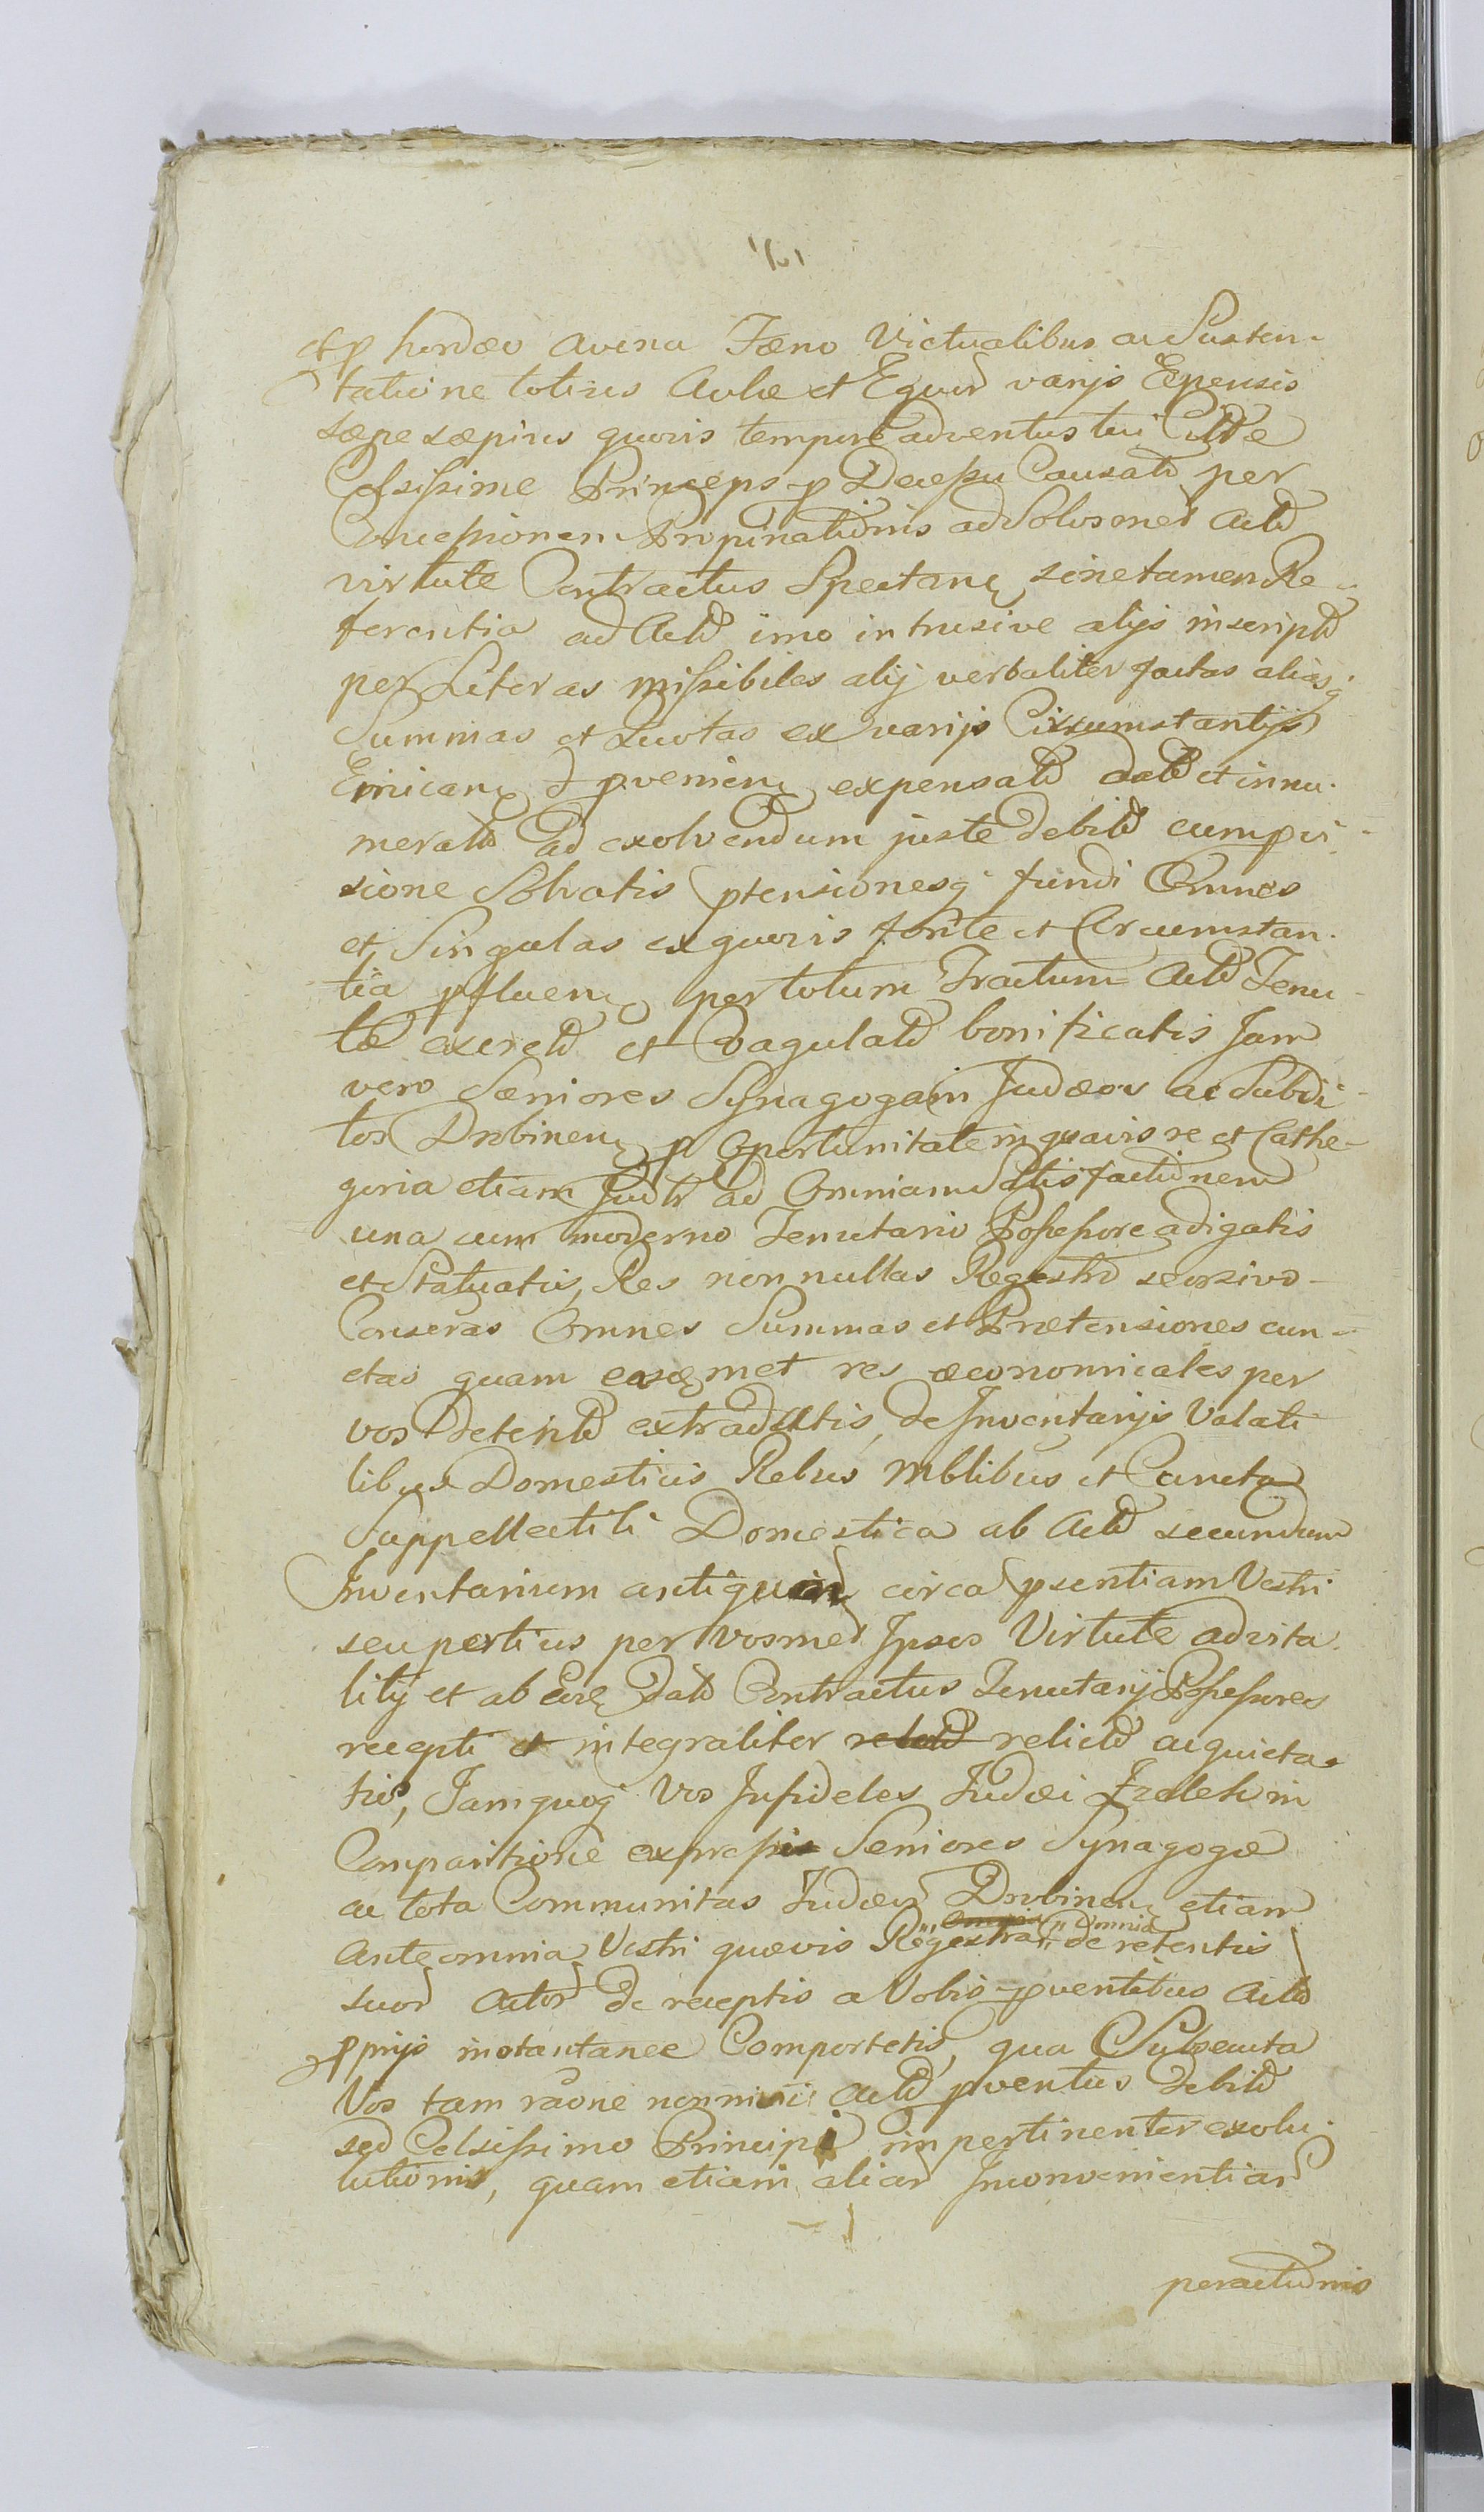 et p hordeo avena Fæno Victualibus ac Susten-
tatione totius Aulæ et Equor varijs Expensis
sæpe sæpius quovis tempore adventus tui
Celsissime Princeps p Decessu Causatt per
Concessionem Propinationis ad Solosmet Actt
virtute Contractus Spectan sine tamen Re-
ferentia ad Actt imo intrusive alijs inscriptt
per Literas missibiles alij verbaliter factas aliasq
Summas et Quotas ex varijs Circumstantijs
Emican et pvenien expensatt datt et innu-
meratt ad exolvendum juste debitt cum pvi-
sione Solvatis ptensionesq fundi Omnes
et Singulas ex quovis fonte et Circumstan-
tia pfluen per totum Tractum Actt Tenu-
tæ exercitt et Coagulatt bonificatis Jam
vero Seniores Synagogam Judæor ac Subdi-
tos Drobinen p Oportunitate in quavis re et Cathe-
goria etiam Judtr ad Omnium Sattisfactionem
una cum moderno Tenutario Possessore adigatis
et Statuatis, Res nonnullas Regestro seorsivo
Conseras Omnes Summas et Prætensiones cun-
ctas quam easqmet res œconomicales per
vos detentt extradatis, de Inventarijs Valati
libus Domesticis Rebus Mblibus et Cuncta
Suppellectili Domestica ab Actt secundum
Inventarium antiquum circa psentiam Vestri
seu pertius per vosmet Ipsos Virtute advita-
litij et ab Eoq datt Contractus Tenutarij Possessores
recepti et integraliter relictt acquieta-
tis, Tamquoq Vos Infideles Judæi Izdeh in
Comparitione expressis Seniores Synagogæ
ac tota Communitas Judæor Drobinen etiam
Ante omnia Vestri quævis Regestra p Omnia de retentis
suor Actor de receptis a Vobis pventibus Actt
pprijs instantanee Comportetis, qua Subsecuta
Vos tam raõne nonnisi Actt pventus debitt
sed Celsissimo Principi impertinenter exolu-
lutionis, quam etiam aliar Inconvenientiar
peractionis